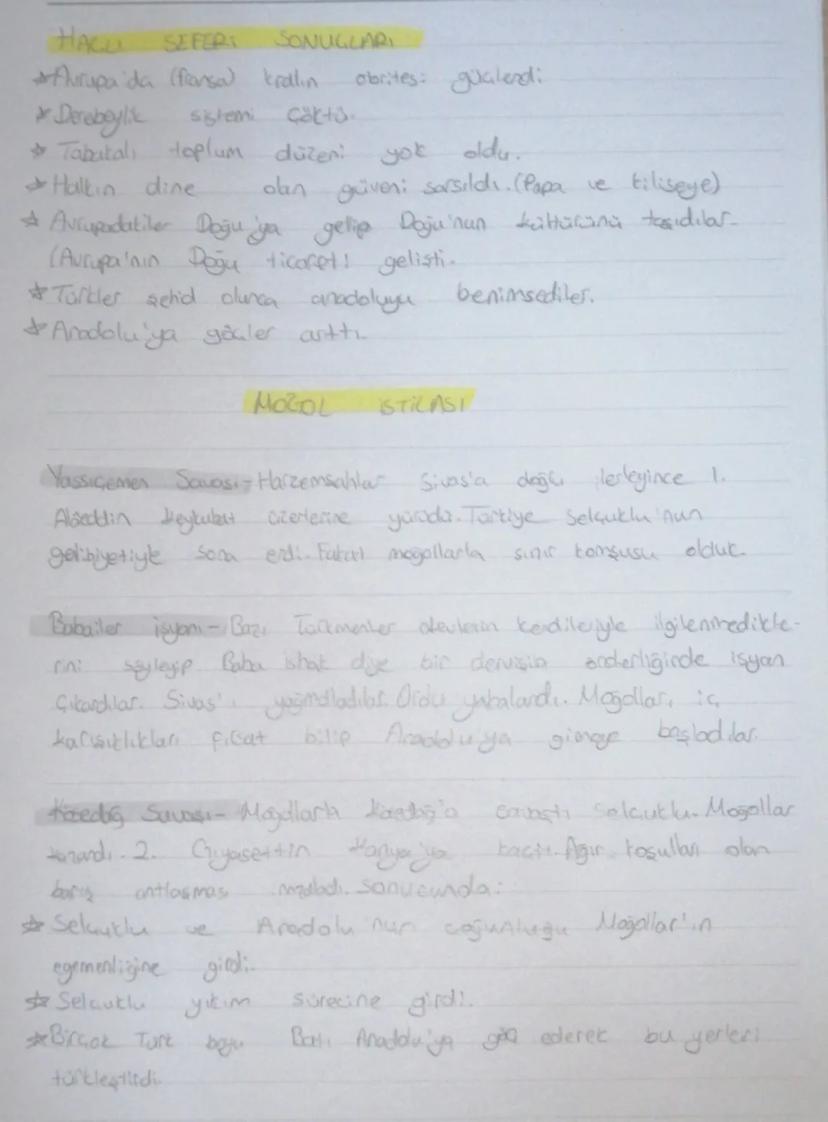 HAÇLI SEFERİ SONUÇLARI
☆Avrupa'da (fransa) kralın otoritesi güçlendi
☆Derebeylik sistemi çöktü.
☆ Tabakalı toplum düzeni yok oldu.
☆Halkın dine olan güveni sarsıldı. (Papa ve kiliseye)
☆ Avrupadakiler Doğu'ya gelip Doğu'nun kültürünü taşıdılar.
(Avrupa'nın Doğu ticareti gelişti.
☆Türkler şehid olunca anadoluyu benimsediler.
☆Anadolu'ya göçler arttı.
MOĞOL İSTİLASI
Yassıçemen Savaşı-Harzemşahlar Sivas'a doğru ilerleyince 1.
Alaeddin Keykubat üzerlerine yürüdü. Türkiye Selçuklu'nun
galibiyetiyle sona erdi. Fakat mogollarla sınır komşusu olduk.
Babailer isyanı-Bazı Türkmenler kendileriyle ilgilenmedikle-
rini söyleyip Baba ishak diye bir dervişin önderliğinde isyan
çıkardılar. Sivas'ı yağmaladılar. Ordu yakalandı. Moğollar, iç
karışıklıkları fırsat bilip Anadolu'ya girmeye başladılar.
Kösedağ Savaşı-Moğollarla Kösedağ'a savaştı Selçuklu. Moğollar
kazandı. 2. Gıyasettin Konya'ya kaçtı. Ağır koşulları olan
barış antlaşması imzaladı. Sonucunda:
☆Selçuklu ve Anadolu'nun çoğunluğu Moğollar'ın
egemenliğine girdi.
☆Selçuklu yıkım sürecine girdi.
☆Birçok Türk boyu Batı Anadolu'ya göç ederek bu yerleri
türkleştirdi.